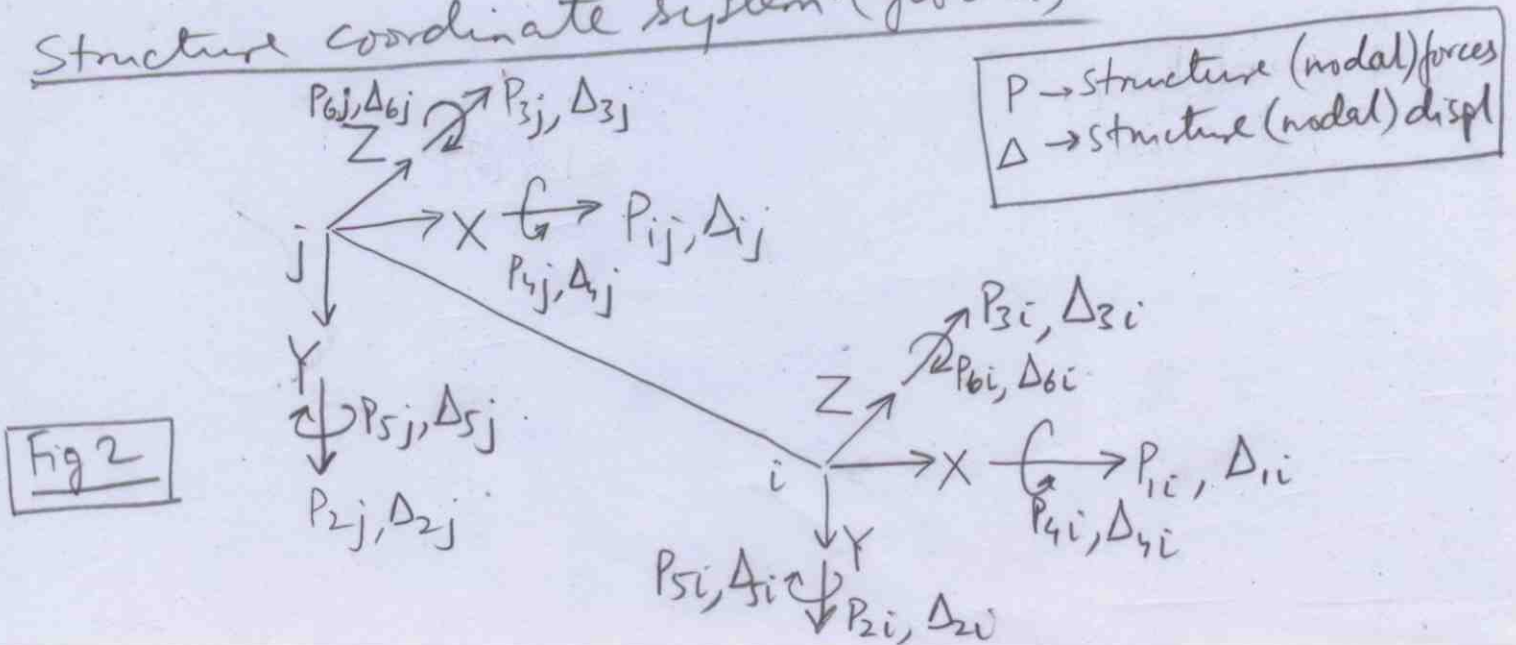 Structure coordinate system (global)
P → structure (nodal) forces
Δ → structure (nodal) displ
P6j, Δ6j
P3j, Δ3j
Z
j
X
Pij, Δij
P4j, Δ4j
Y
P5j, Δ5j
P2j, Δ2j
Fig 2
P3i, Δ3i
P6i, Δ6i
Z
i
X
P1i, Δ1i
P4i, Δ4i
Y
P5i, Δ5i
P2i, Δ2i